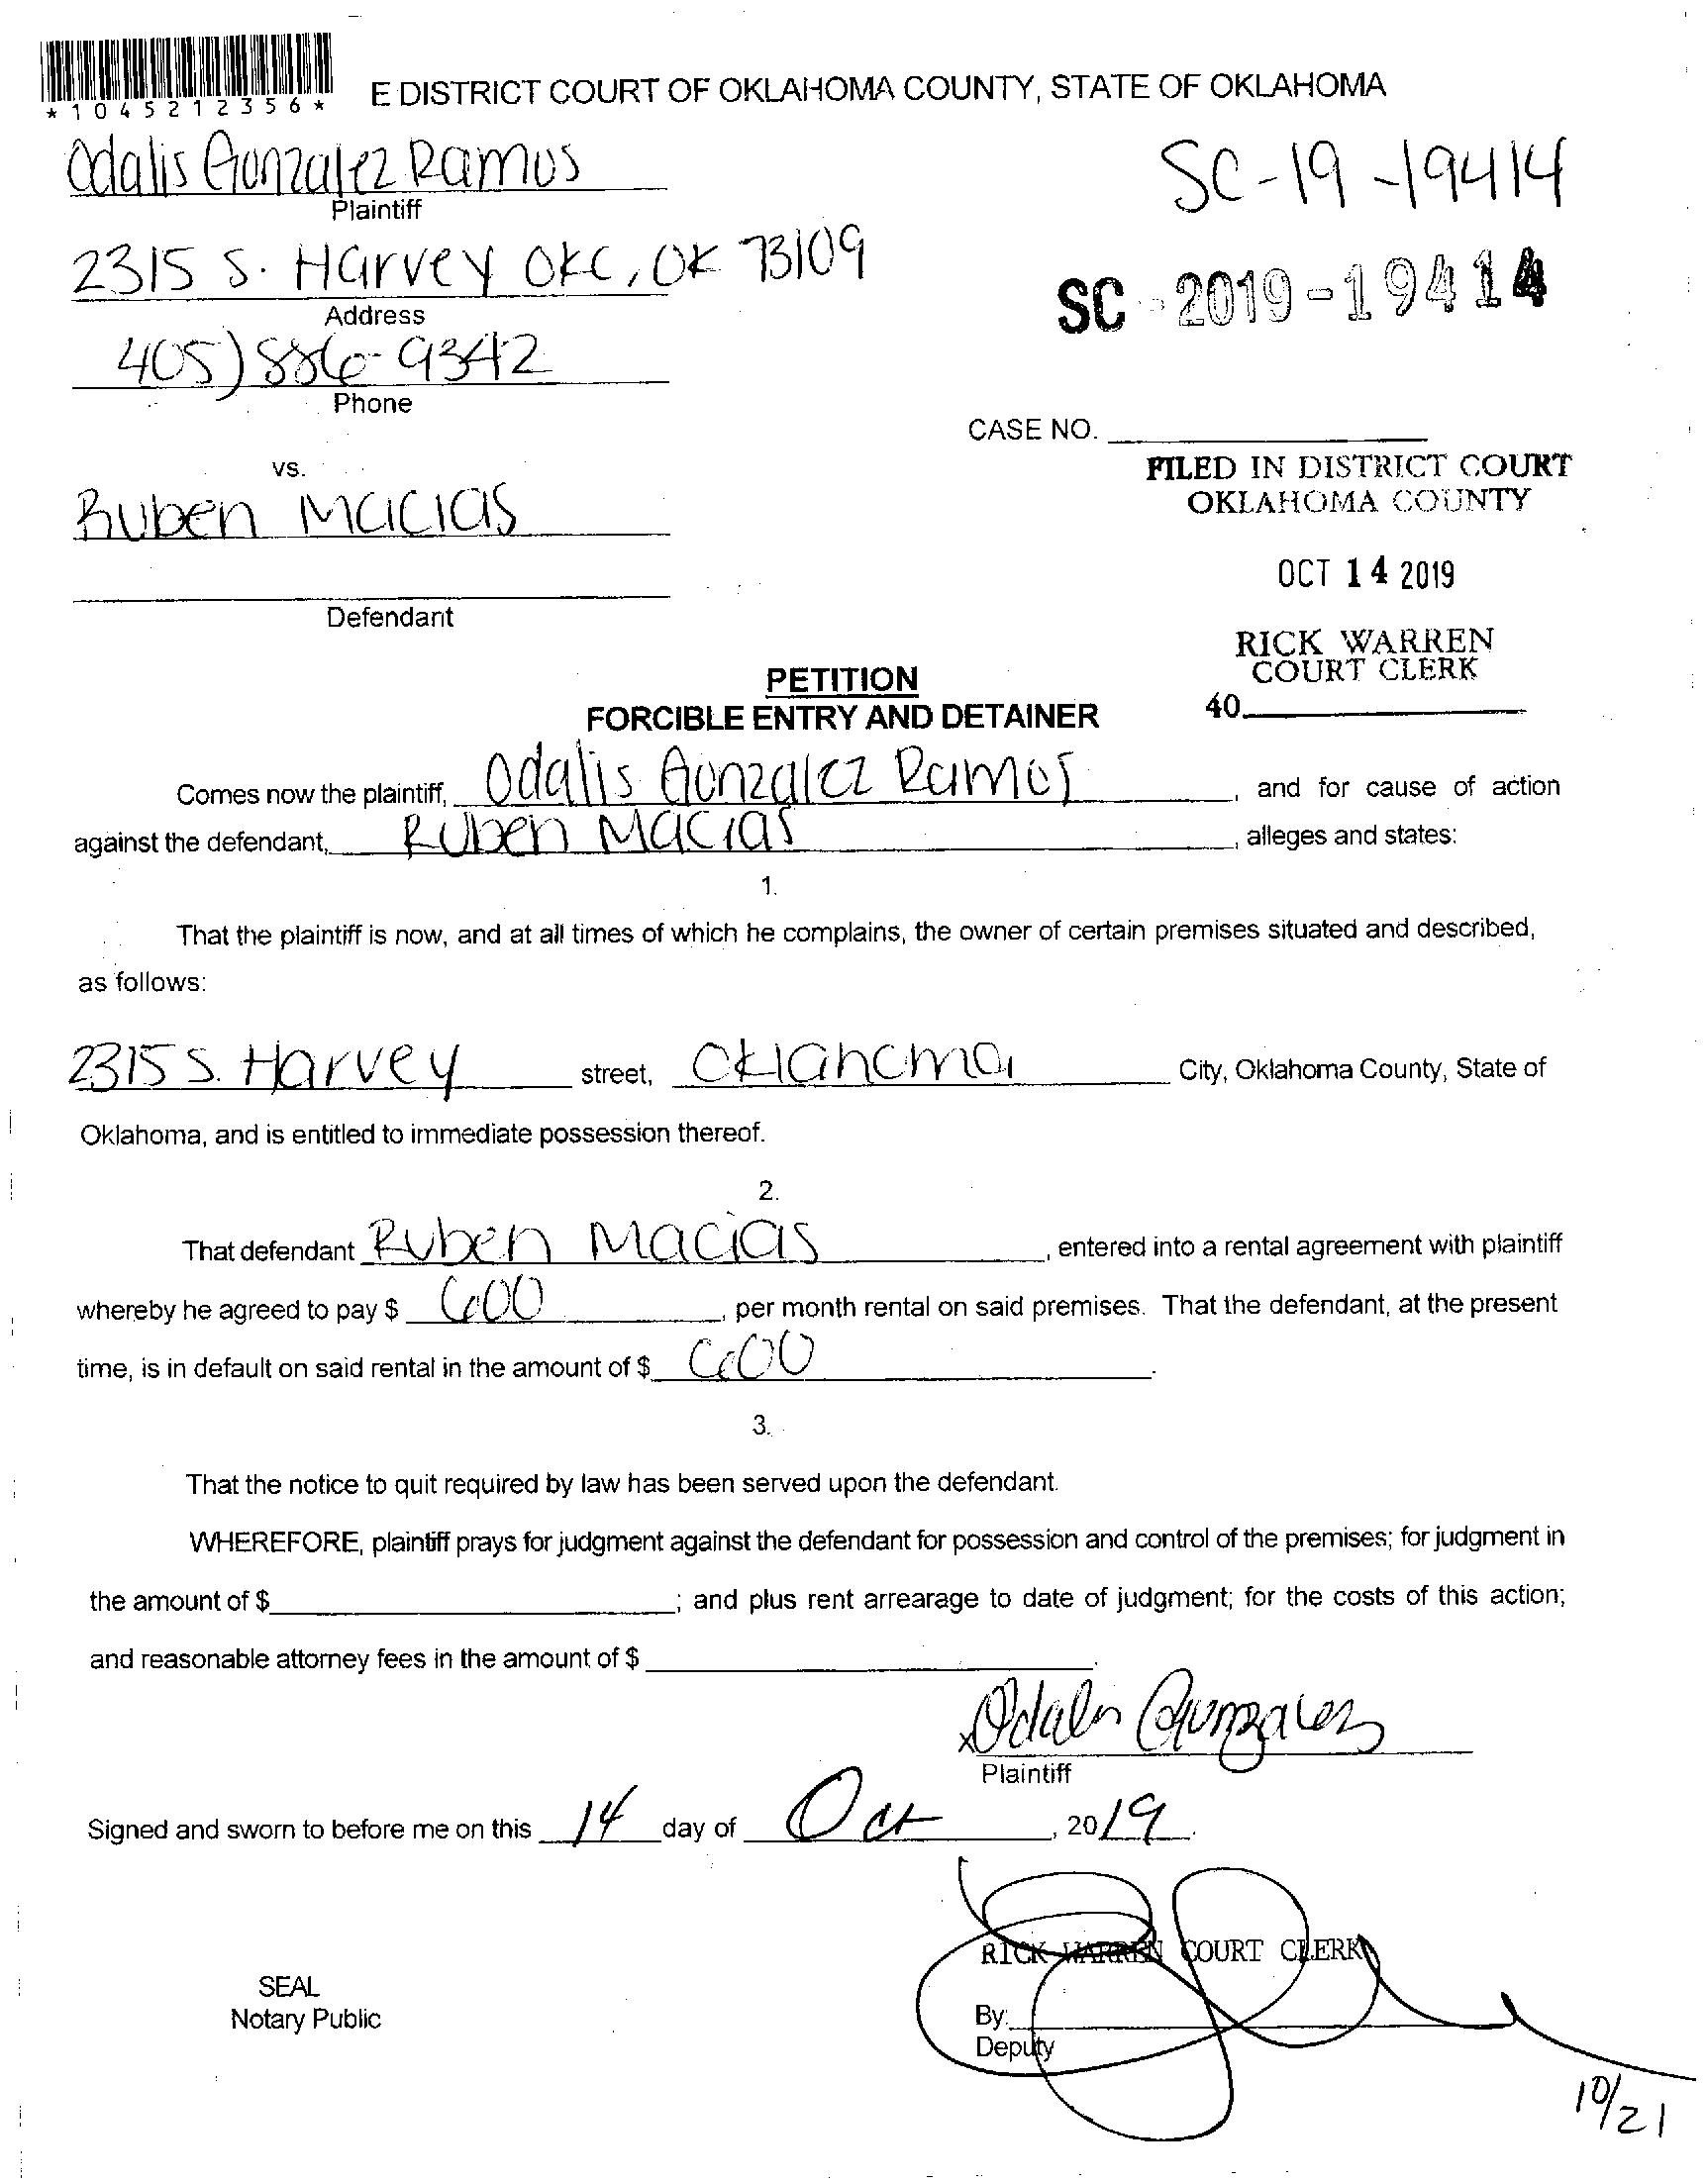 *1045212356*
E DISTRICT COURT OF OKLAHOMA COUNTY, STATE OF OKLAHOMA
Odalis Gonzalez Ramos
Plaintiff
SC-19-19414
2315 S. Harvey OKC, OK 73109
Address
SC-2019-19414
405) 886-9342
Phone
CASE NO.
vs.
FILED IN DISTRICT COURT
OKLAHOMA COUNTY
Ruben Macias
OCT 14 2019
Defendant
RICK WARREN
COURT CLERK
40
PETITION
FORCIBLE ENTRY AND DETAINER
Comes now the plaintiff, Odalis Gonzalez Ramos, and for cause of action
against the defendant, Ruben Macias, alleges and states:
1.
That the plaintiff is now, and at all times of which he complains, the owner of certain premises situated and described,
as follows:
2315 S. Harvey street, Oklahoma City, Oklahoma County, State of
Oklahoma, and is entitled to immediate possession thereof.
2.
That defendant Ruben Macias, entered into a rental agreement with plaintiff
whereby he agreed to pay $ 600, per month rental on said premises. That the defendant, at the present
time, is in default on said rental in the amount of $ 600.
3.
That the notice to quit required by law has been served upon the defendant.
WHEREFORE, plaintiff prays for judgment against the defendant for possession and control of the premises; for judgment in
the amount of $ ; and plus rent arrearage to date of judgment; for the costs of this action;
and reasonable attorney fees in the amount of $ .
x Odalis Gonzalez
Plaintiff
Signed and sworn to before me on this 14 day of Oct, 2019.
RICK WARREN COURT CLERK
SEAL
Notary Public
By:
Deputy
10/21